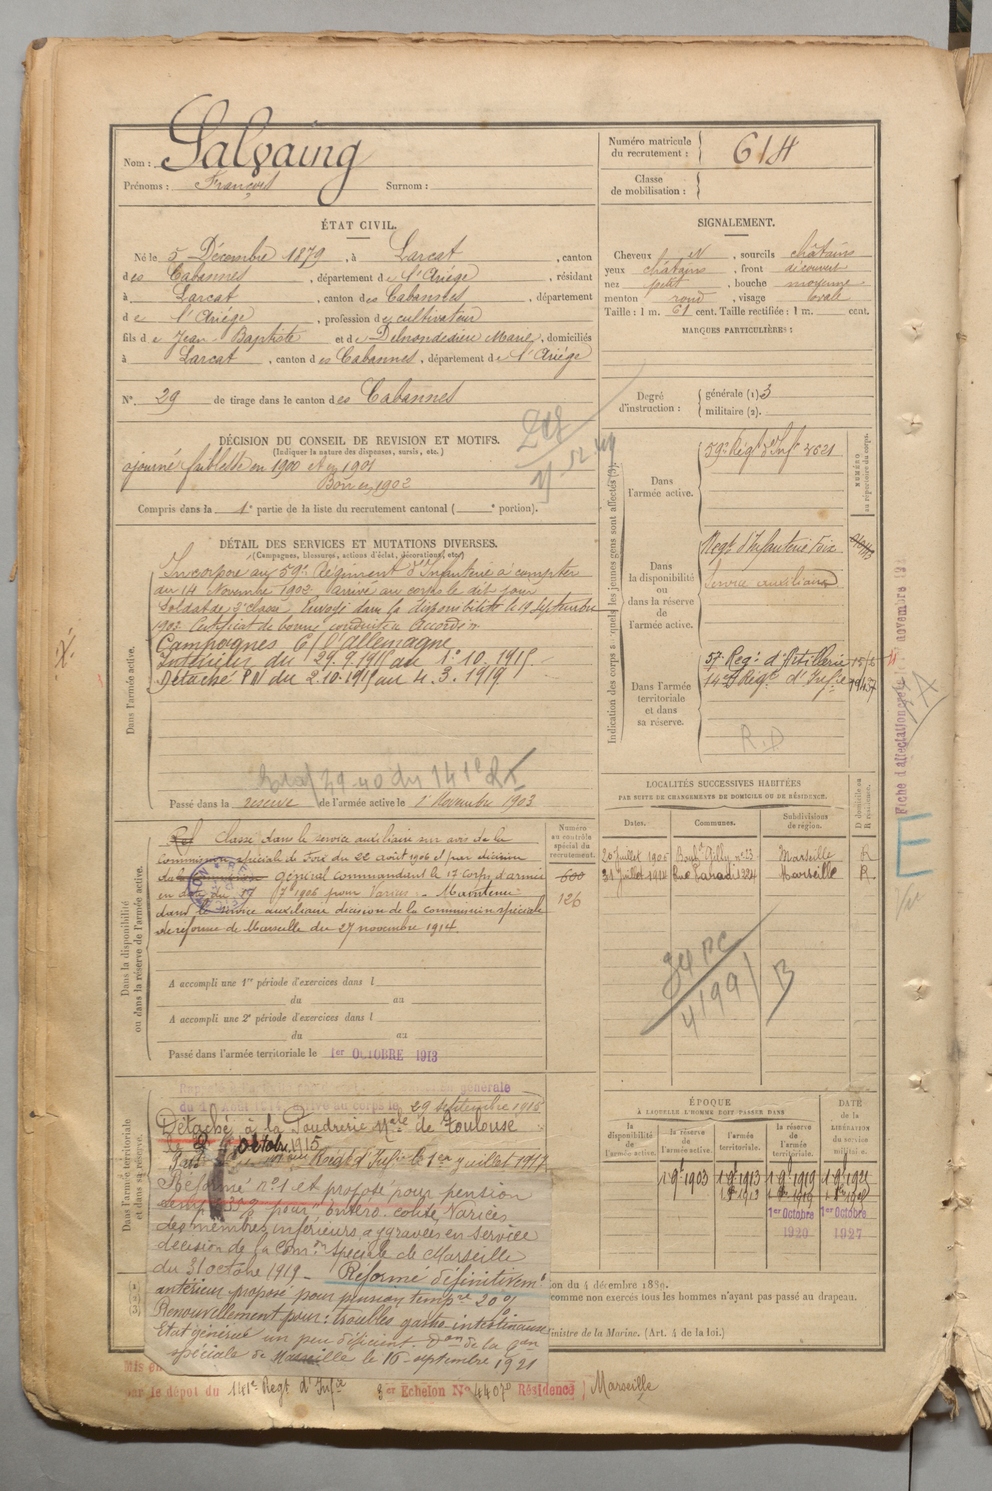 Nom : Salvaing
Prénoms : François Surnom :
Numéro matricule du recrutement : 614
Classe de mobilisation :
ÉTAT CIVIL.
Né le 5 Décembre 1879, à Larcat, canton
des Cabannes, département de l'Ariége, résidant
à Larcat, canton des Cabannes, département
de l'Ariége, profession de cultivateur
fils de Jean Baptiste et de Marie, domiciliés
à Larcat, canton des Cabannes, département de l'Ariége
N° 29 de tirage dans le canton des Cabannes
SIGNALEMENT.
Cheveux N, sourcils châtains
yeux châtains, front découvert
nez petit, bouche moyenne
menton rond, visage ovale
Taille : 1 m. 61 cent. Taille rectifiée : 1 m. cent.
MARQUES PARTICULIÈRES :
Degré d'instruction : générale (1) 3
militaire (2).
DÉCISION DU CONSEIL DE REVISION ET MOTIFS.
(Indiquer la nature des dispenses, sursis, etc.)
ajourné faiblesse en 1900 et en 1901
Bon en 1902
Compris dans la 1e partie de la liste du recrutement cantonal ( e portion).
DÉTAIL DES SERVICES ET MUTATIONS DIVERSES.
(Campagnes, blessures, actions d'éclat, décorations, etc.)
Dans l'armée active.
Incorporé au 59e Régiment d'Infanterie à compter
du 14 Novembre 1902, arrivé au corps le dit jour
Soldat de 2e classe. Envoyé dans la disponibilité le 19 Septembre
1903 Certificat de bonne conduite Accordé
Campagnes C/ l'allemagne
Intérieur du 29.9.1915 au 1er.10.1915
Détaché PN du 2.10.1915 au 4.3.1919
Passé dans la reserve de l'armée active le 1 Novembre 1903
Indication des corps auxquels les jeunes gens sont affectés (3).
NUMÉRO au répertoire du corps.
Dans l'armée active.
59e Régt d'Inft 4621
Dans la disponibilité ou dans la réserve de l'armée active.
Regt d'Infanterie Foix
Service auxiliaire
Dans l'armée territoriale et dans sa réserve.
57e Regt d'Artillerie
141e Regt d'Infie
R.D
Fiche d'affectation novembre
Dans la disponibilité ou dans la réserve de l'armée active.
Classé dans le service auxiliaire sur avis de la
commission spéciale de Foix du 22 août 1906 et par décision
du général commandant le 17 Corps d'armée
1906 pour Varices. Maintenu
dans le service auxiliaire décision de la commission spéciale
de réforme de Marseille du 27 novembre 1914.
Numéro au contrôle spécial du recrutement.
600
126
A accompli une 1re période d'exercices dans l
du au
A accompli une 2e période d'exercices dans l
du au
Passé dans l'armée territoriale le 1er OCTOBRE 1913
LOCALITÉS SUCCESSIVES HABITÉES
PAR SUITE DE CHANGEMENTS DE DOMICILE OU DE RÉSIDENCE.
Dates. Communes. Subdivisions de région. D domicile ou R résidence.
20 Juillet 1905 Marseille R
31 Juillet 1914 Rue Paradis 224 Marseille R.
Dans l'armée territoriale et dans sa réserve.
générale
29 septembre 1915
Détaché à la Poudrerie Nale de Toulouse
le 2 Octobre 1915
Regt d'Infie le 1er juillet 1917
Réformé n°1 et proposé pour pension
pour entéro colite, Varices
des membres inférieurs, aggravées en service
décision de la Comon Spéciale de Marseille
du 31 octobre 1919 — Réformé définitivemt
antérieur proposé pour pension tempre 20%
Renouvellement pour : troubles gastro-intestinaux
Etat général un peu déficient. Don de la Con
spéciale de Marseille le 16 septembre 1921
ÉPOQUE À LAQUELLE L'HOMME DOIT PASSER DANS
la disponibilité de l'armée active. la réserve de l'armée active. l'armée territoriale. la réserve de l'armée territoriale.
DATE de la LIBÉRATION du service militaire.
1 9bre 1903 1 9bre 1913 1 9bre 1919
1er Octobre 1920
1er Octobre 1927
on du 4 décembre 1889.
comme non exercés tous les hommes n'ayant pas passé au drapeau.
inistre de la Marine. (Art. 4 de la loi.)
par le dépôt du 141e Regt d'Infie 3er Echelon N° 4407 Résidence Marseille